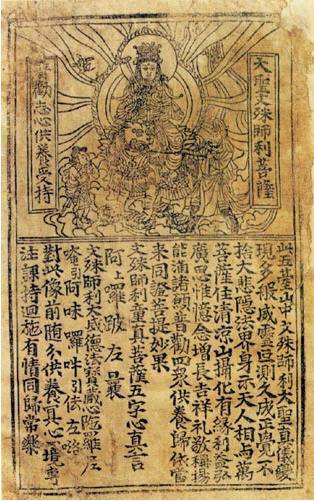 大聖文殊師利菩薩
普勸志心供養受持
此五臺山中文殊師利大聖真儀變
現多般威靈叵測久成正覺不
捨大悲隱法界身示天人相與萬
菩薩住清涼山攝化有緣利益弘
廣思惟憶念增長吉祥礼敬稱揚
能滿諸願普勸四衆供養歸依當
來同證菩提妙果
文殊師利童真菩薩五字心真言
阿上囉跛左曩
文殊師利大威德法寶藏心陁羅尼
唵引阿味囉吽引佉左咯
對此像前隨分供養冥心一境專
注課持迴施有情同歸常樂